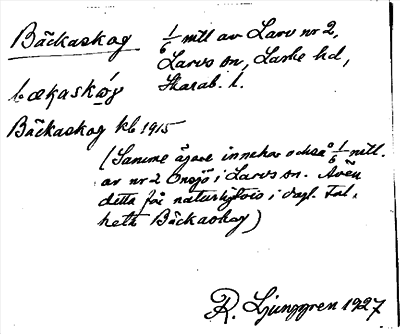 Bäckaskog 1/6 mtl av Larv nr 2,
Larvs sn, Laske hd,
bækaskóg Skarab. l.
Bäckaskog kb 1915
(Samme ägare innehar också 1/6 mtl.
av nr 2 Onsjö i Larvs sn. Även
detta får naturligtvis i dagl. tal
heta Bäckaskog)
R. Ljunggren 1927